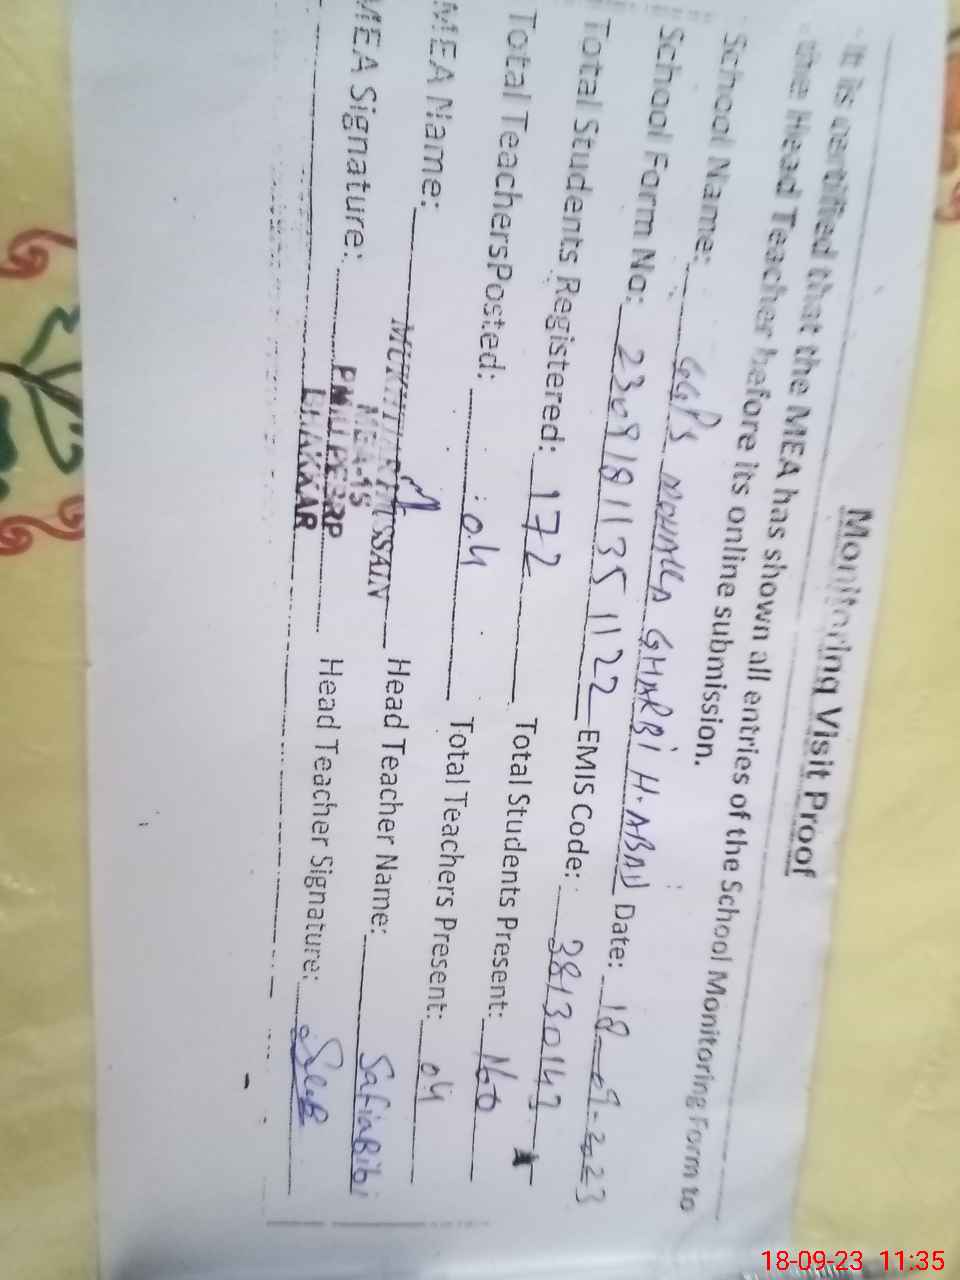 Monitoring Visit Proof
It is certified that the MEA has shown all entries of the School Monitoring Form to
the Head Teacher before its online submission.
School Name: GGPS MOHALLA GHARBI H.ABAD Date: 18-09-2023
School Form No: 23091811351122 EMIS Code: 38130143
Total Students Registered: 172 Total Students Present: 160
Total TeachersPosted: 04 Total Teachers Present: 04
MEA Name: MUKHTIAR HUSSAIN Head Teacher Name: Safia Bibi
MEA-15
MEA Signature: PMIU PESRP Head Teacher Signature:
BHAKKAR
18-09-23 11:35